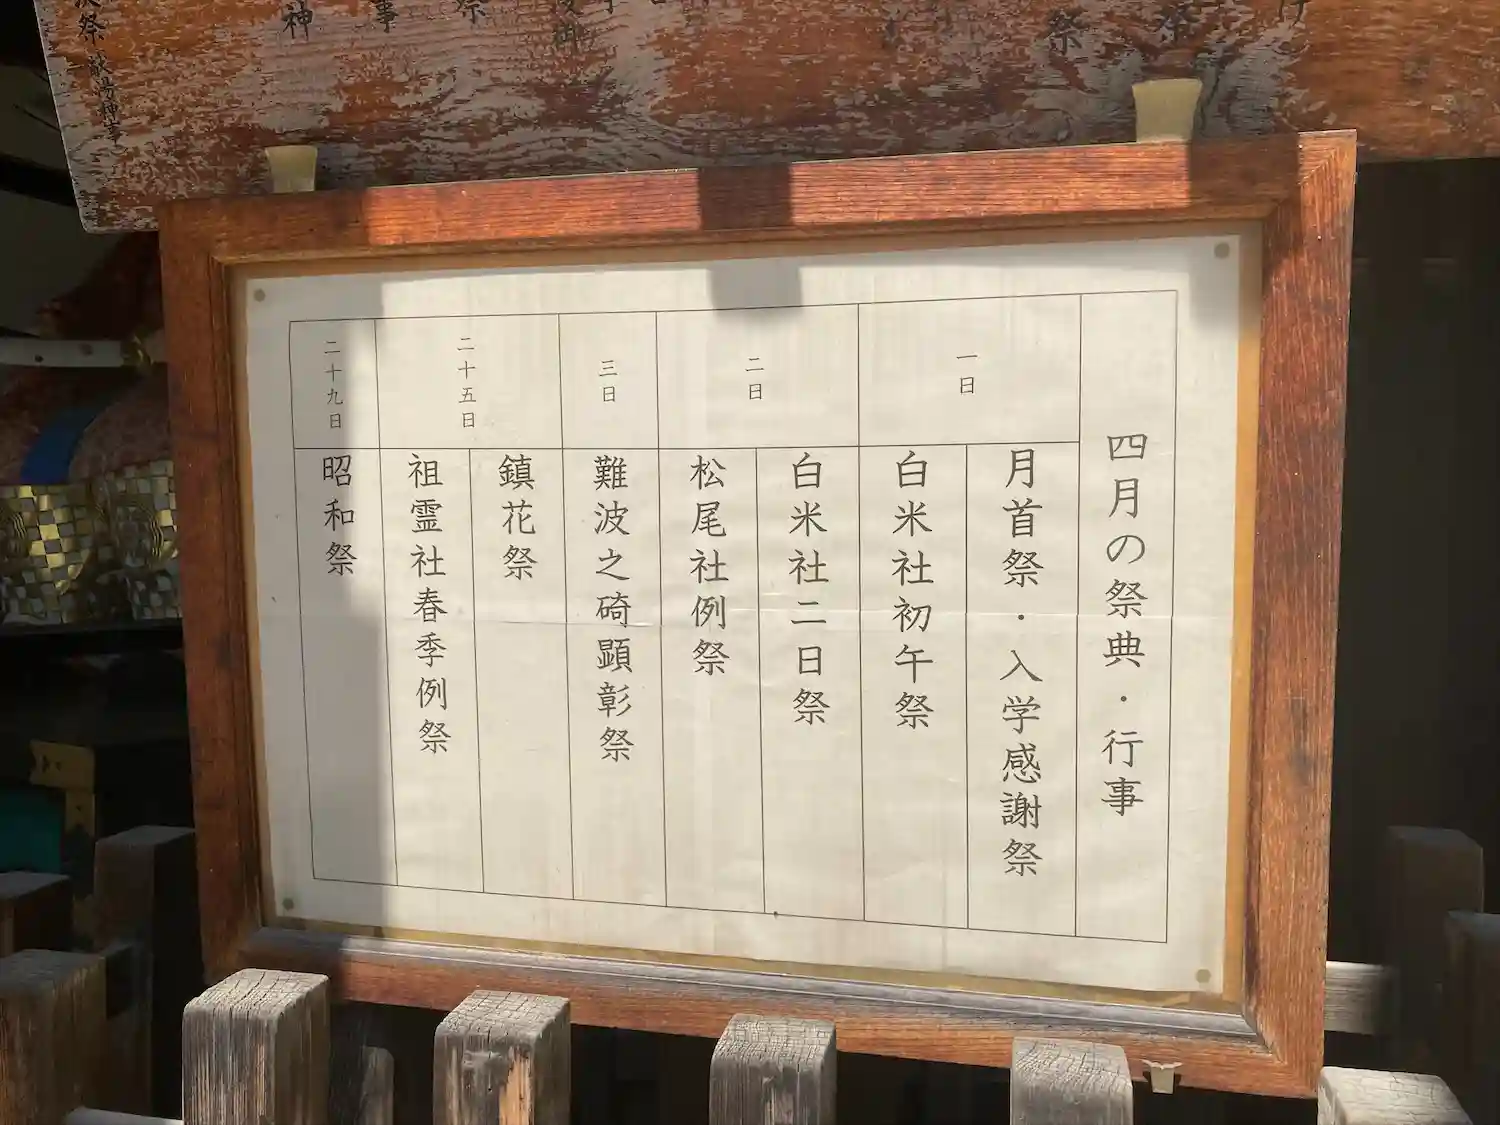 四月の祭典・行事
一日
月首祭・入学感謝祭
白米社初午祭
二日
白米社二日祭
松尾社例祭
三日
難波之碕顕彰祭
二十五日
鎮花祭
祖霊社春季例祭
二十九日
昭和祭
祭
祭
神
事
祭
献湯神事